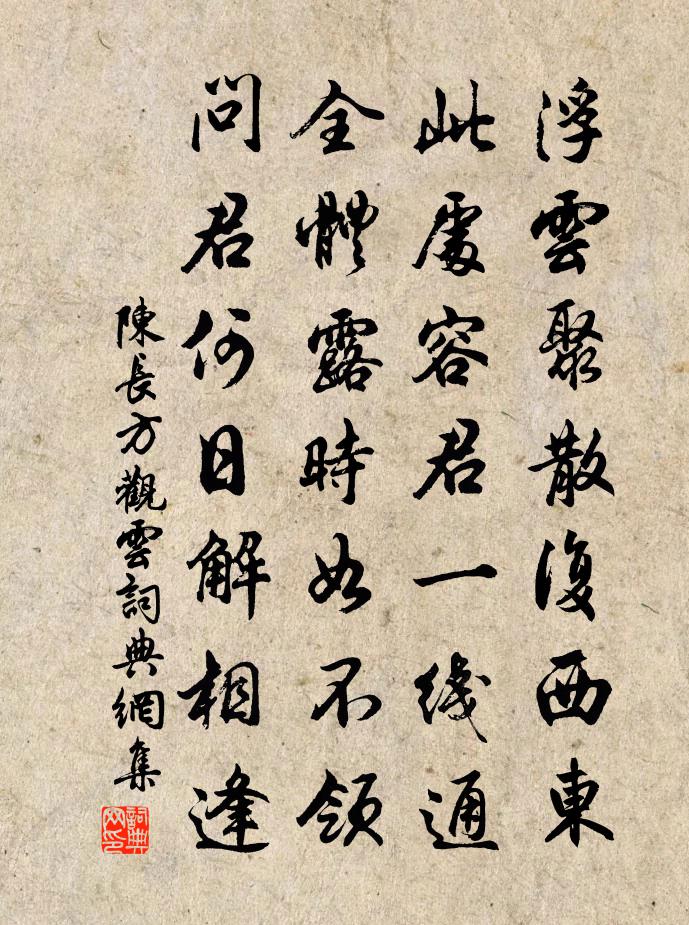 浮雲聚散復西東
此處容君一綫通
全體露時如不領
問君何日解相逢
陳長方觀雲詞典網集
詞典网印